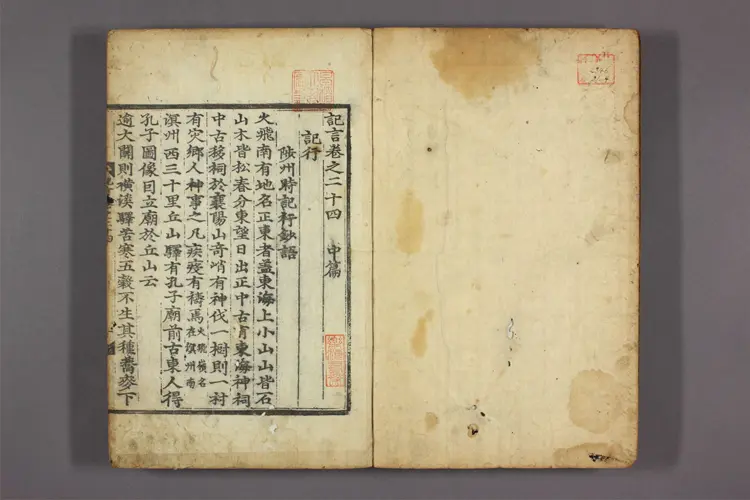 記言卷之二十四 中篇
記行
陟州時記行鈔語
火飛南有地名正東者蓋東海上小山山皆石
山木皆松春分東望日出正中古有東海神祠
中古移祠於襄陽山奇峭有神伐一樹則一村
有灾鄉人神事之凡疾疫有禱焉火飛嶺名在溟州南
溟州西三十里丘山驛有孔子廟前古東人得
孔子圖像因立廟於丘山云
逾大關則橫溪驛苦寒五穀不生其種蕎麥下